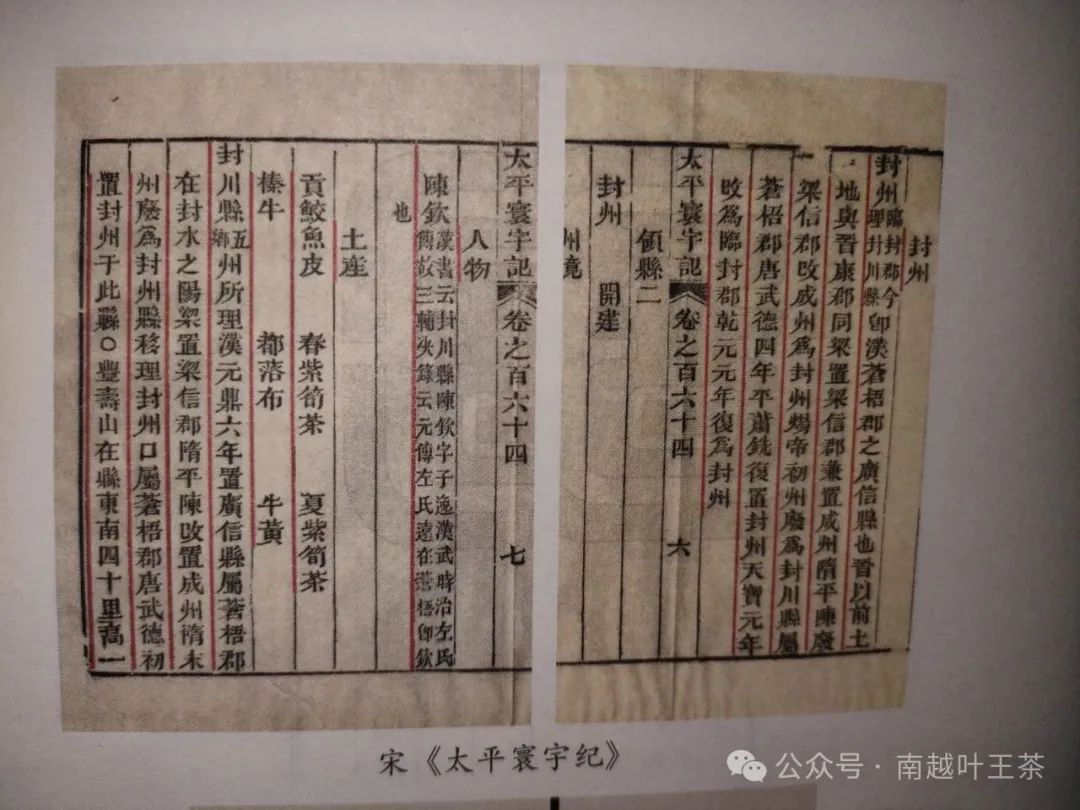 封州
封州臨封郡今理封川縣卽漢蒼梧郡之廣信縣也晉以前土
地與晉康郡同梁置梁信郡兼置成州隋平陳廢
梁信郡改成州為封州煬帝初州廢為封川縣屬
蒼梧郡唐武德四年平蕭銑復置封州天寶元年
改為臨封郡乾元元年復為封州
太平寰宇記 卷之百六十四 六
領縣二
封州 開建
州境
太平寰宇記 卷之百六十四 七
人物
陳欽漢書云封川縣陳欽字子逸漢武時治左氏
傳故三輔決錄云元傳左氏遠在蒼梧卽欽
也
土產
貢鮫魚皮 春紫筍茶 夏紫筍茶
榛牛 都落布 牛黃
封川縣五鄉州所理漢元鼎六年置廣信縣屬蒼梧郡
在封水之陽梁置梁信郡隋平陳改置成州隋末
州廢為封州縣移理封州口屬蒼梧郡唐武德初
置封州于此縣○豐壽山在縣東南四十里高一
宋《太平寰宇纪》
公众号·南越叶王茶